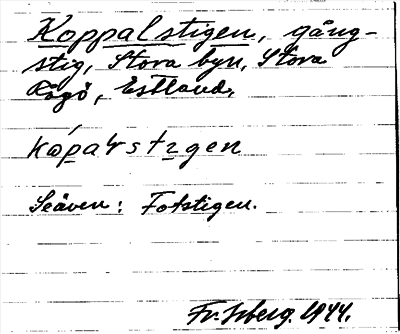 Koppalstigen, gång-
stig, Stora byn, Stora
Rågö, Estland.
kópalstigen
Även: Fotstigen.
Fr. Isberg. 1944.